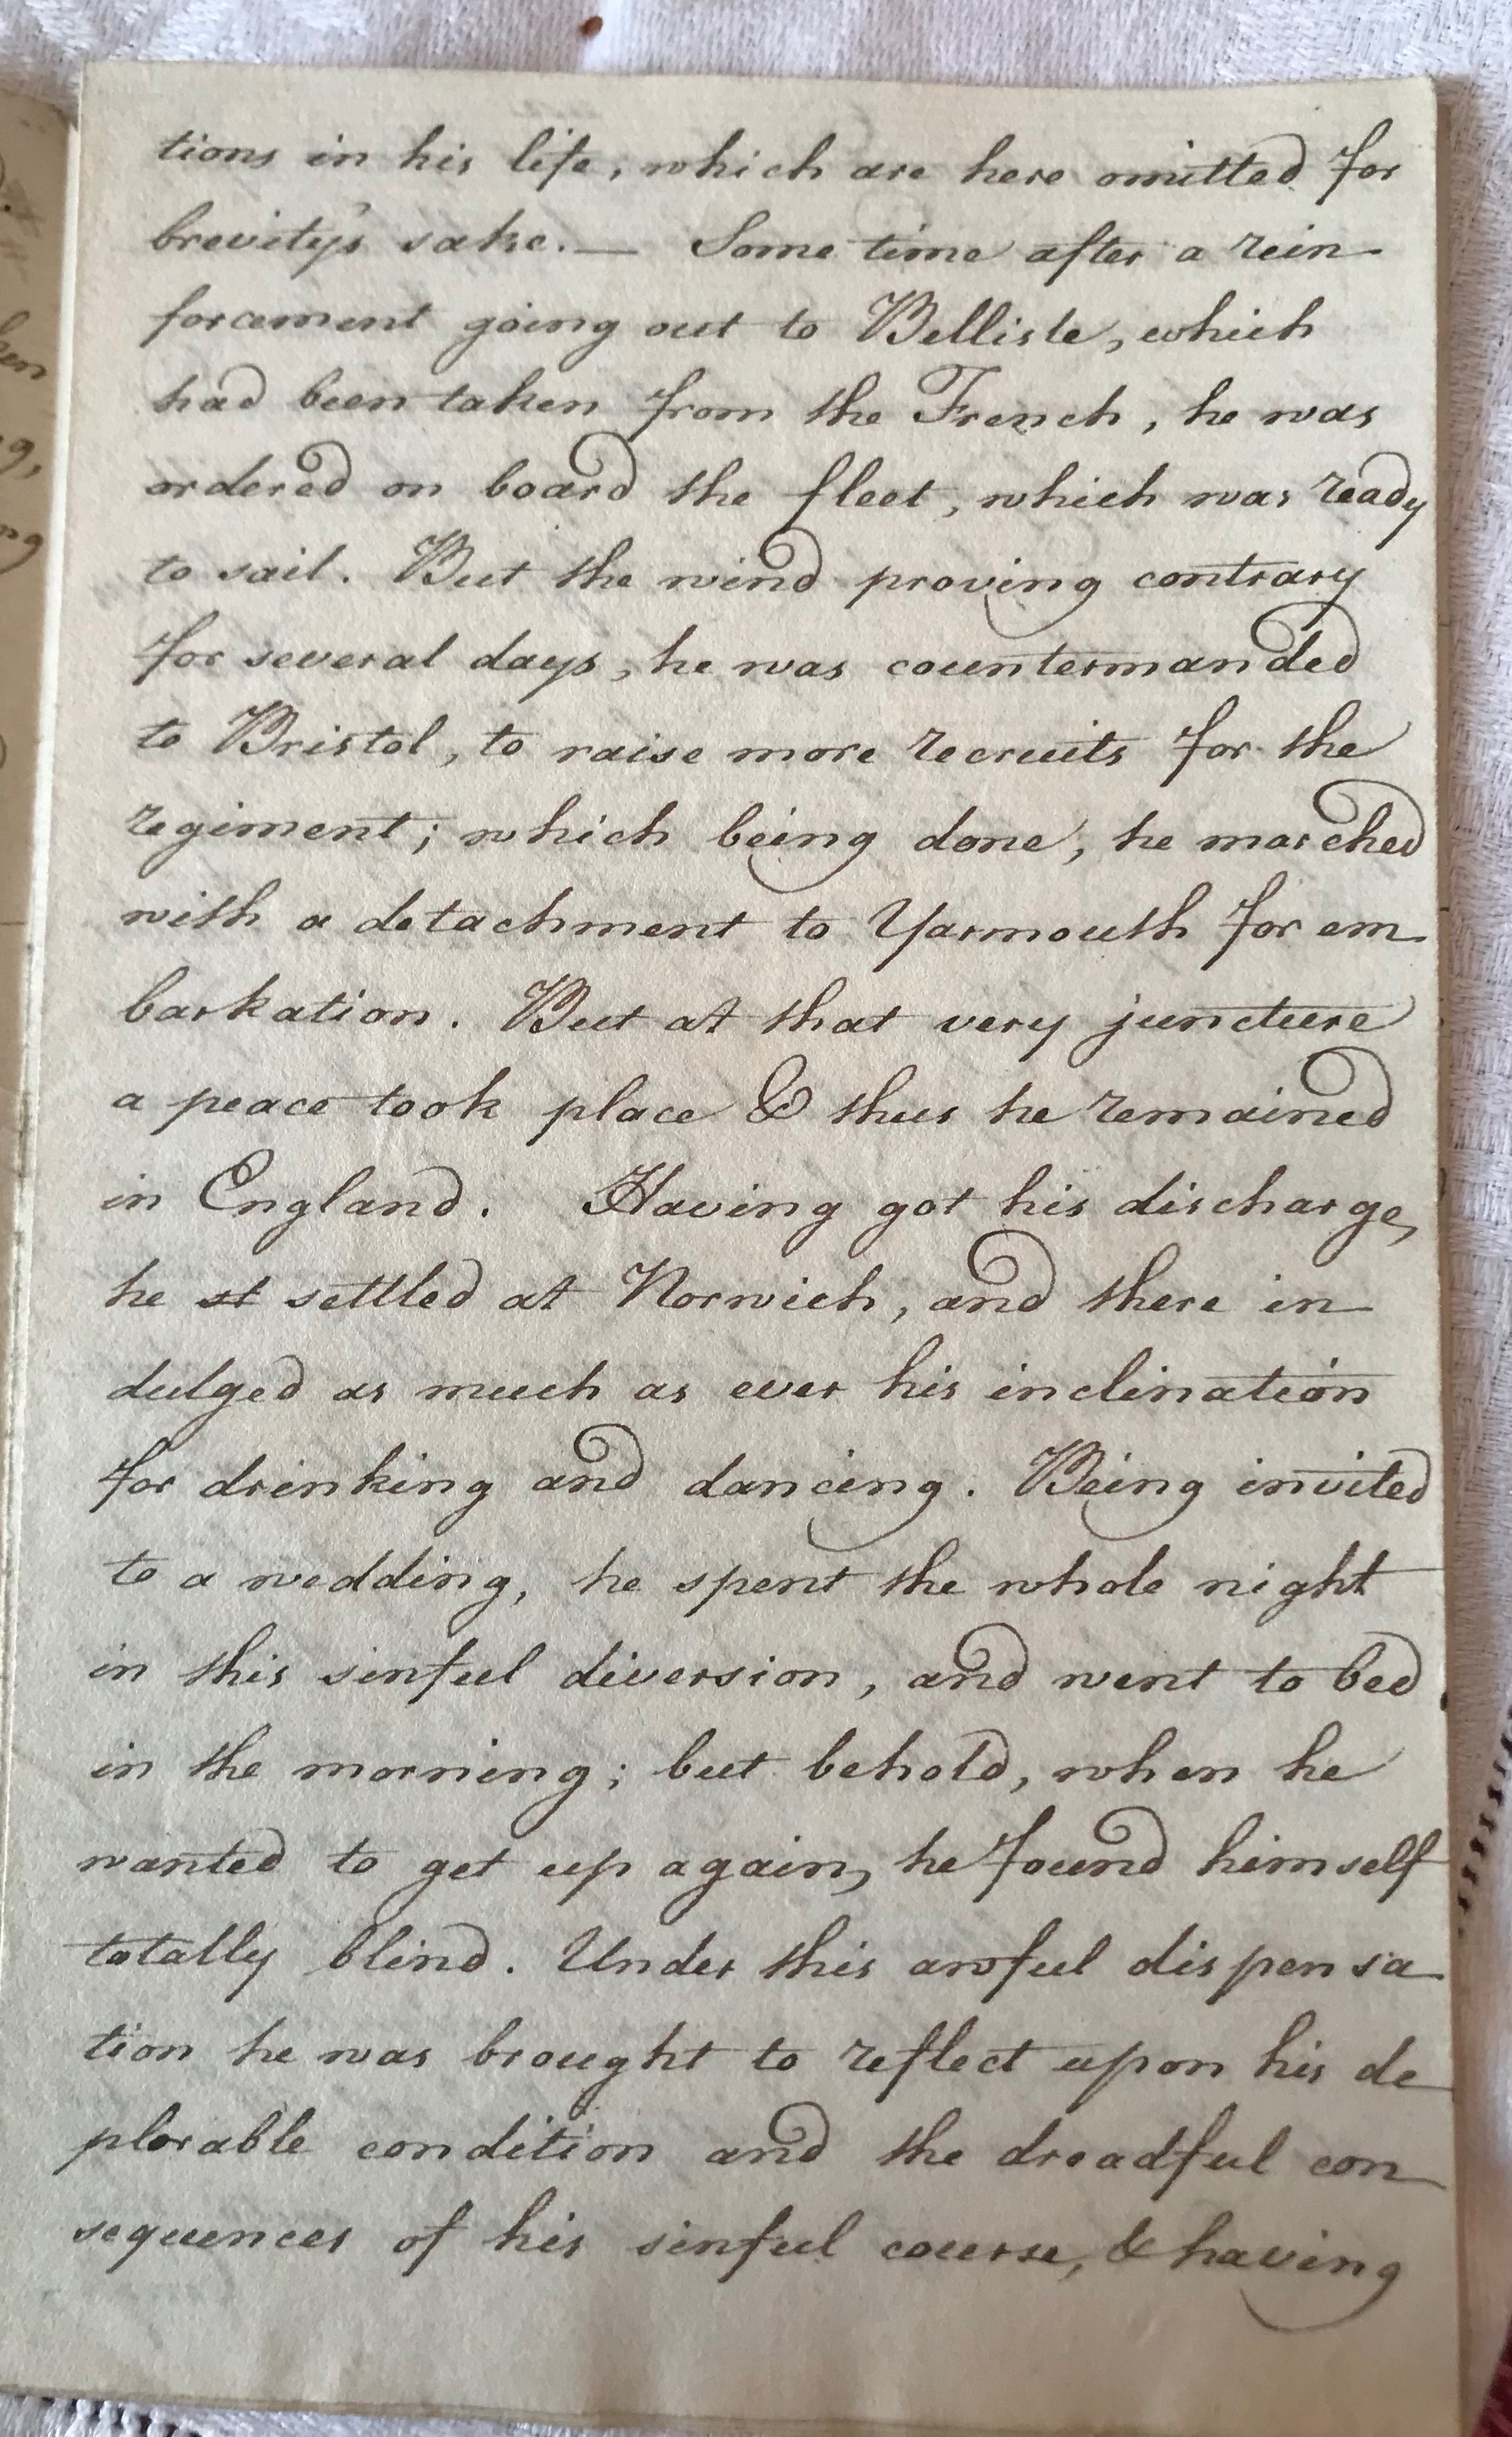 tions in his life, which are here omitted for
brevity's sake. — Some time after a rein-
forcement going out to Bellisle, which
had been taken from the French, he was
ordered on board the fleet, which was ready
to sail. But the wind proving contrary
for several days, he was countermanded
to Bristol, to raise more recruits for the
regiment; which being done, he marched
with a detachment to Yarmouth for em-
barkation. But at that very juncture
a peace took place & thus he remained
in England. Having got his discharge,
he st settled at Norwich, and there in-
dulged as much as ever his inclination
for drinking and dancing. Being invited
to a wedding, he spent the whole night
in this sinful diversion, and went to bed
in the morning; but behold, when he
wanted to get up again, he found himself
totally blind. Under this awful dispensa-
tion he was brought to reflect upon his de-
plorable condition and the dreadful con-
sequences of his sinful course, & having